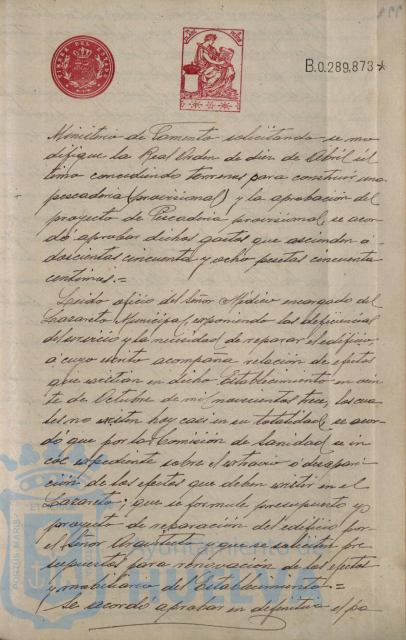 B.0.289.873*
Ministerio de Fomento solicitando se mo
difique la Real Orden de diez de Abril úl
timo concediendo terrenos para construir una
pescadería (provisional) y la aprobación del
proyecto de Pescadería provisional, se acor
dó aprobar dichos gastos que ascienden a
doscientas cincuenta y ocho pesetas cincuenta
centimos.=
Leido oficio del Señor Médico encargado del
Lazareto Municipal, exponiendo las deficiencias
del servicio y la necesidad de reparar el edificio,
a cuyo escrito acompaña relación de efectos
que existian en dicho Establecimiento en vein
te de Octubre de mil novecientos trece, los cua
les no existen hoy casi en su totalidad, se acor
dó que por la Comisión de Sanidad se in
coe expediente sobre el extravio o desapari
ción de los efectos que deben existir en el
Lazareto; que se formule presupuesto y
proyecto de reparación del edificio por
el Señor Arquitecto y que se soliciten pre
supuestos para renovación de los efectos
y mobiliario del Establecimiento.=
Se acordó aprobar en definitiva el pa
PORTUS MARIS ET
Ayuntamiento de
HUELVA